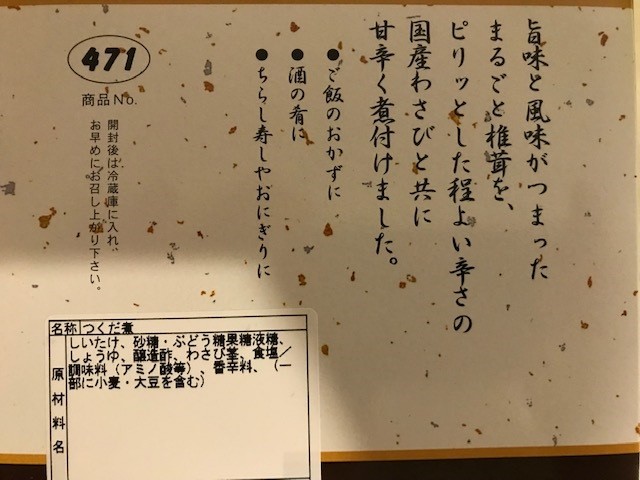 旨味と風味がつまった
まるごと椎茸を、
ピリッとした程よい辛さの
国産わさびと共に
甘辛く煮付けました。
●ご飯のおかずに
●酒の肴に
●ちらし寿しやおにぎりに
471
商品No.
開封後は冷蔵庫に入れ、
お早めにお召し上がり下さい。
名称 つくだ煮
原材料名
しいたけ、砂糖・ぶどう糖果糖液糖、
しょうゆ、醸造酢、わさび茎、食塩／
調味料（アミノ酸等）、香辛料、（一
部に小麦・大豆を含む）